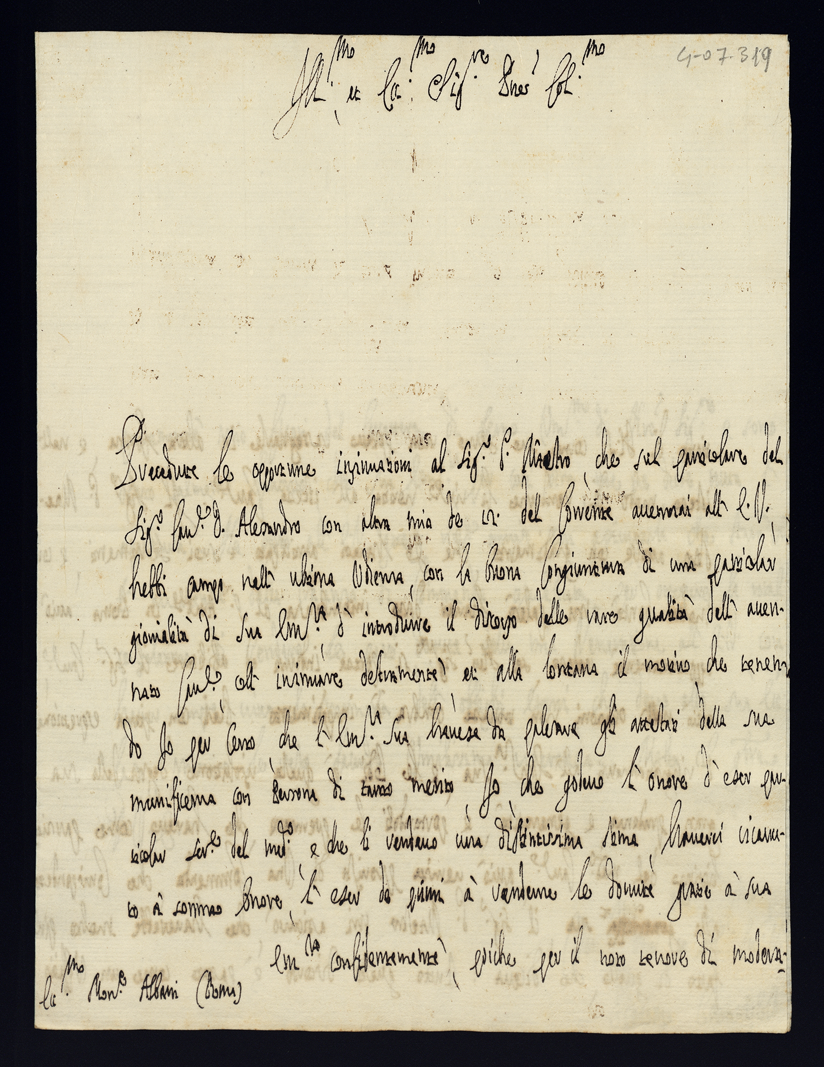 4-07.319
Ill.mo et Ecc.mo Sig.re Pne Col.mo
Precedute le opportune insinuazioni al Sig.r P. Maestro, che sul particolare del
Sig.r Cav.r D. Alesandro con altra mia de 12. del Corrente avenzai all' E. V.,
hebbi campo nell' ultima Udienza, con la buona Congiuntura di una particolar
giovialità di Sua Em.za d' introdurre il discorso delle rare qualità dell' aven-
zato Cav.r, coll' insinuare destramente, et alla lontana il motivo, che tenen-
do Io per Certo, che l' Em.za Sua havesse da palesare gli attestati della sua
munificenza con Persona di tanto merito, Io che godevo l' onore d' esser par-
ticolar Ser.e del med.o, e che li rendevo una distintissima stima haverei ricevu-
to à sommo honore, l' esser de primi à renderne le dovute grazie à sua
Em.za confidentemente, poiche per il noto tenore di modera-
Ecc.mo Mon.r Albani (Roma)